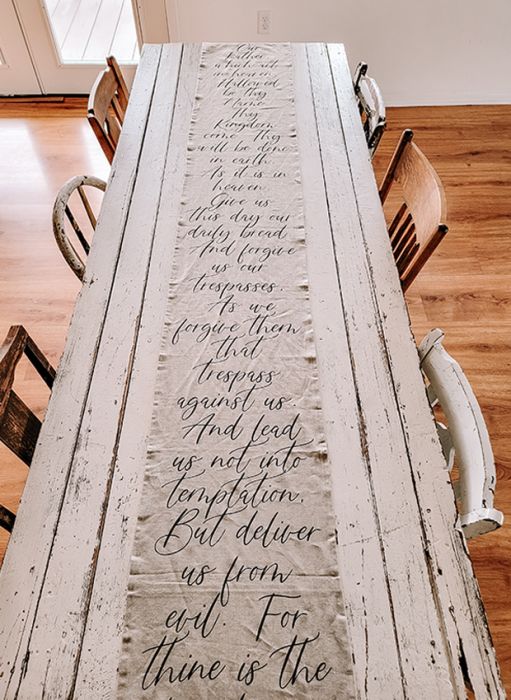 Our
Father
which art
in heaven
Hallowed
be thy
Name
Thy
Kingdom
come. Thy
will be done
in earth
As it is in
heaven.
Give us
this day our
daily bread.
And forgive
us our
trespasses.
As we
forgive them
that
trespass
against us.
And lead
us not into
temptation.
But deliver
us from
evil. For
thine is the